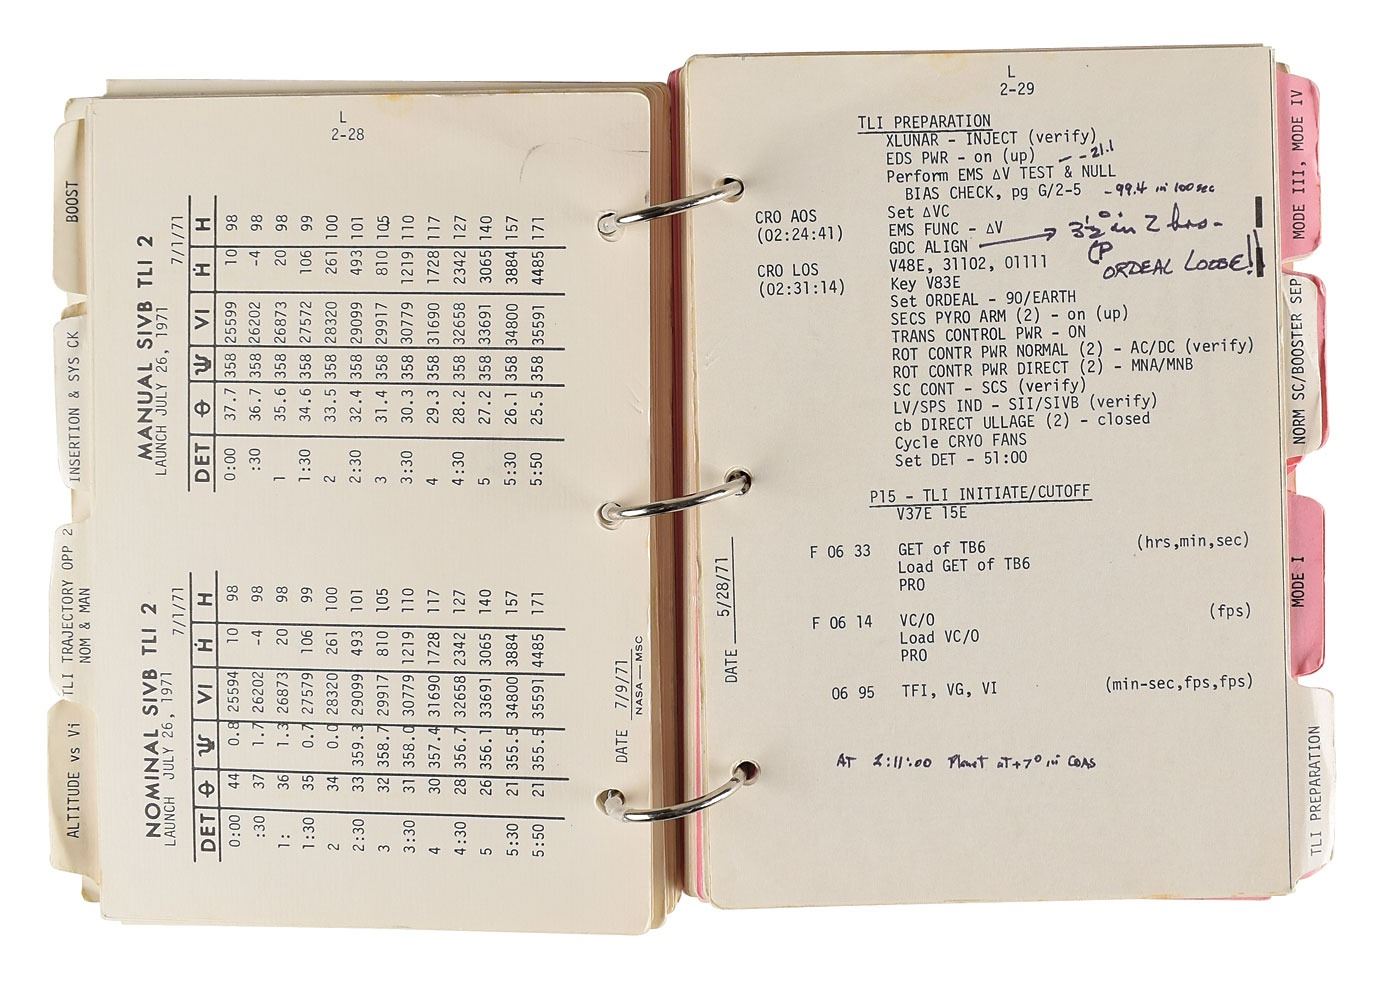 L
2-28
MANUAL SIVB TLI 2
LAUNCH JULY 26, 1971 7/1/71
DET θ Ψ VI Ḣ H
0:00 37.7 358 25599 10 98
:30 36.7 358 26202 -4 98
1 35.6 358 26873 20 98
1:30 34.6 358 27572 106 99
2 33.5 358 28320 261 100
2:30 32.4 358 29099 493 101
3 31.4 358 29917 810 105
3:30 30.3 358 30779 1219 110
4 29.3 358 31690 1728 117
4:30 28.2 358 32658 2342 127
5 27.2 358 33691 3065 140
5:30 26.1 358 34800 3884 157
5:50 25.5 358 35591 4485 171
NOMINAL SIVB TLI 2
LAUNCH JULY 26, 1971 7/1/71
DET θ Ψ VI Ḣ H
0:00 44 0.8 25594 10 98
:30 37 1.7 26202 -4 98
1: 36 1.3 26873 20 98
1:30 35 0.7 27579 106 99
2 34 0.0 28320 261 100
2:30 33 359.3 29099 493 101
3 32 358.7 29917 810 105
3:30 31 358.0 30779 1219 110
4 30 357.4 31690 1728 117
4:30 28 356.7 32658 2342 127
5 26 356.1 33691 3065 140
5:30 21 355.5 34800 3884 157
5:50 21 355.5 35591 4485 171
DATE 7/9/71
NASA — MSC
BOOST
INSERTION & SYS CK
TLI TRAJECTORY OPP 2
NOM & MAN
ALTITUDE vs Vi
L
2-29
TLI PREPARATION
XLUNAR - INJECT (verify)
EDS PWR - on (up) -21.1
Perform EMS ΔV TEST & NULL
BIAS CHECK, pg G/2-5 -99.4 in 100 sec
CRO AOS Set ΔVC
(02:24:41) EMS FUNC - ΔV
GDC ALIGN → 3½° in 2 hrs-
(P
ORDEAL LOOSE!
CRO LOS V48E, 31102, 01111
(02:31:14) Key V83E
Set ORDEAL - 90/EARTH
SECS PYRO ARM (2) - on (up)
TRANS CONTROL PWR - ON
ROT CONTR PWR NORMAL (2) - AC/DC (verify)
ROT CONTR PWR DIRECT (2) - MNA/MNB
SC CONT - SCS (verify)
LV/SPS IND - SII/SIVB (verify)
cb DIRECT ULLAGE (2) - closed
Cycle CRYO FANS
Set DET - 51:00
P15 - TLI INITIATE/CUTOFF
V37E 15E
F 06 33 GET of TB6 (hrs,min,sec)
Load GET of TB6
PRO
F 06 14 VC/O (fps)
Load VC/O
PRO
06 95 TFI, VG, VI (min-sec,fps,fps)
At 2:11:00 Planet at +7° in COAS
DATE 5/28/71
MODE III, MODE IV
NORM SC/BOOSTER SEP
MODE I
TLI PREPARATION